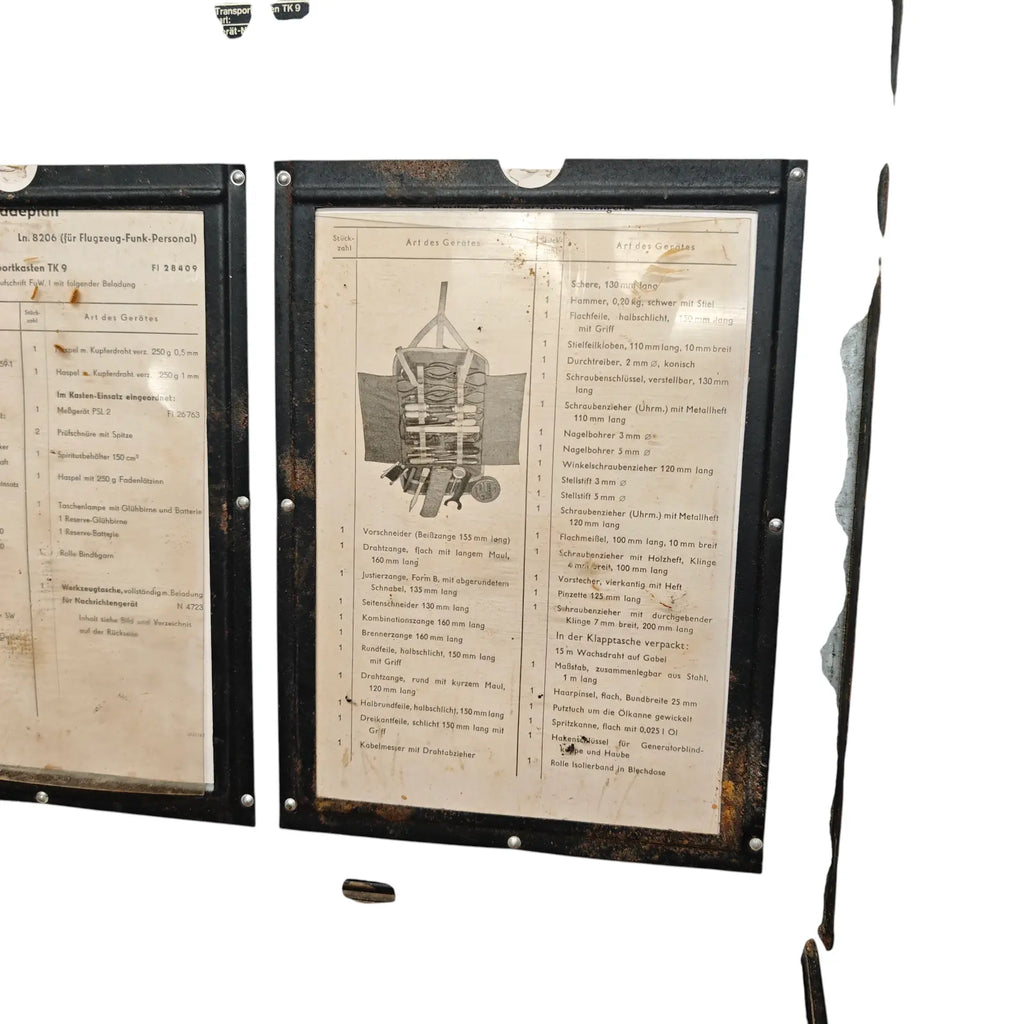 Transport
en TK 9
art:
rät-N
adeplan
Ln. 8206 (für Flugzeug-Funk-Personal)
portkasten TK 9 Fl 28409
ufschrift FuW. I mit folgender Beladung
Stück-
zahl
Art des Gerätes
1 Haspel m. Kupferdraht verz. 250 g 0,5 mm
1 Haspel m. Kupferdraht verz. 250 g 1 mm
Im Kasten-Einsatz eingeordnet:
1 Meßgerät PSL 2 Fl 26763
2 Prüfschnüre mit Spitze
1 Spiritusbehälter 150 cm³
1 Haspel mit 250 g Fadenlötzinn
1 Taschenlampe mit Glühbirne und Batterie
1 Reserve-Glühbirne
1 Reserve-Batterie
1 Rolle Bindegarn
1 Werkzeugtasche, vollständig m. Beladung
für Nachrichtengerät N 4723
Inhalt siehe Bild und Verzeichnis
auf der Rückseite
Stück-
zahl
Art des Gerätes
1 Vorschneider (Beißzange 155 mm lang)
1 Drahtzange, flach mit langem Maul,
160 mm lang
1 Justierzange, Form B, mit abgerundetem
Schnabel, 135 mm lang
1 Seitenschneider 130 mm lang
1 Kombinationszange 160 mm lang
1 Brennerzange 160 mm lang
1 Rundfeile, halbschlicht, 150 mm lang
mit Griff
1 Drahtzange, rund mit kurzem Maul,
120 mm lang
1 Halbrundfeile, halbschlicht, 150 mm lang
1 Dreikantfeile, schlicht 150 mm lang mit
Griff
1 Kabelmesser mit Drahtabzieher
Stück-
zahl
Art des Gerätes
1 Schere, 130 mm lang
1 Hammer, 0,20 kg, schwer mit Stiel
1 Flachfeile, halbschlicht, 150 mm lang
mit Griff
1 Stielfeilkloben, 110 mm lang, 10 mm breit
1 Durchtreiber, 2 mm ⌀, konisch
1 Schraubenschlüssel, verstellbar, 130 mm
lang
1 Schraubenzieher (Uhrm.) mit Metallheft
110 mm lang
1 Nagelbohrer 3 mm ⌀
1 Nagelbohrer 5 mm ⌀
1 Winkelschraubenzieher 120 mm lang
1 Stellstift 3 mm ⌀
1 Stellstift 5 mm ⌀
1 Schraubenzieher (Uhrm.) mit Metallheft
120 mm lang
1 Flachmeißel, 100 mm lang, 10 mm breit
1 Schraubenzieher mit Holzheft, Klinge
4 mm breit, 100 mm lang
1 Vorstecher, vierkantig mit Heft
1 Pinzette 125 mm lang
1 Schraubenzieher mit durchgehender
Klinge 7 mm breit, 200 mm lang
In der Klapptasche verpackt:
15 m Wachsdraht auf Gabel
1 Maßstab, zusammenlegbar aus Stahl,
1 m lang
1 Haarpinsel, flach, Bundbreite 25 mm
1 Putztuch um die Ölkanne gewickelt
1 Spritzkanne, flach mit 0,025 l Öl
1 Hakenschlüssel für Generatorblind-
kappe und Haube
1 Rolle Isolierband in Blechdose